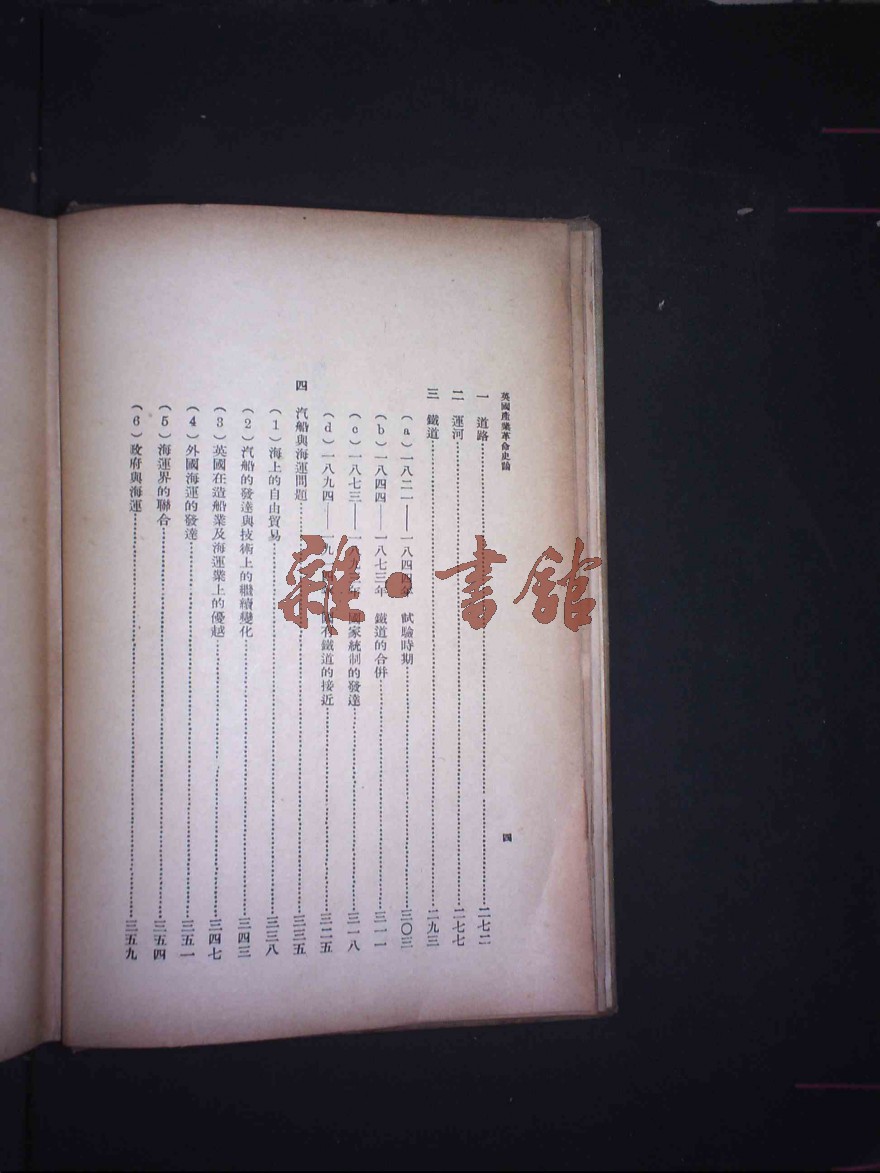 英國產業革命史論
四
一 道路……二七二
二 運河……二七七
三 鐵道……二九三
（a）一八二一——一八四四年 試驗時期……三〇三
（b）一八四四——一八七三年 鐵道的合併……三一一
（c）一八七三——一八九 年 國家統制的發達……三一八
（d）一八九四——一九 國有鐵道的接近……三二五
四 汽船與海運問題……三三五
（1）海上的自由貿易……三三八
（2）汽船的發達與技術上的繼續變化……三四三
（3）英國在造船業及海運業上的優越……三四七
（4）外國海運的發達……三五一
（5）海運界的聯合……三五四
（6）政府與海運……三五九
雜·書館